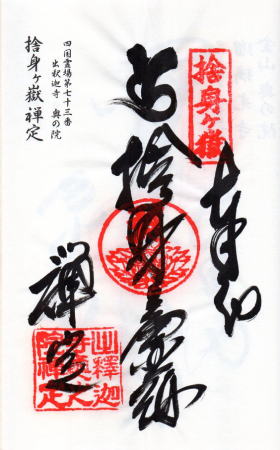 捨身ヶ嶽
捨身ヶ嶽
禅定
出釋迦
四国霊場第七十三番
出釈迦寺 奥の院
捨身ヶ嶽禅定